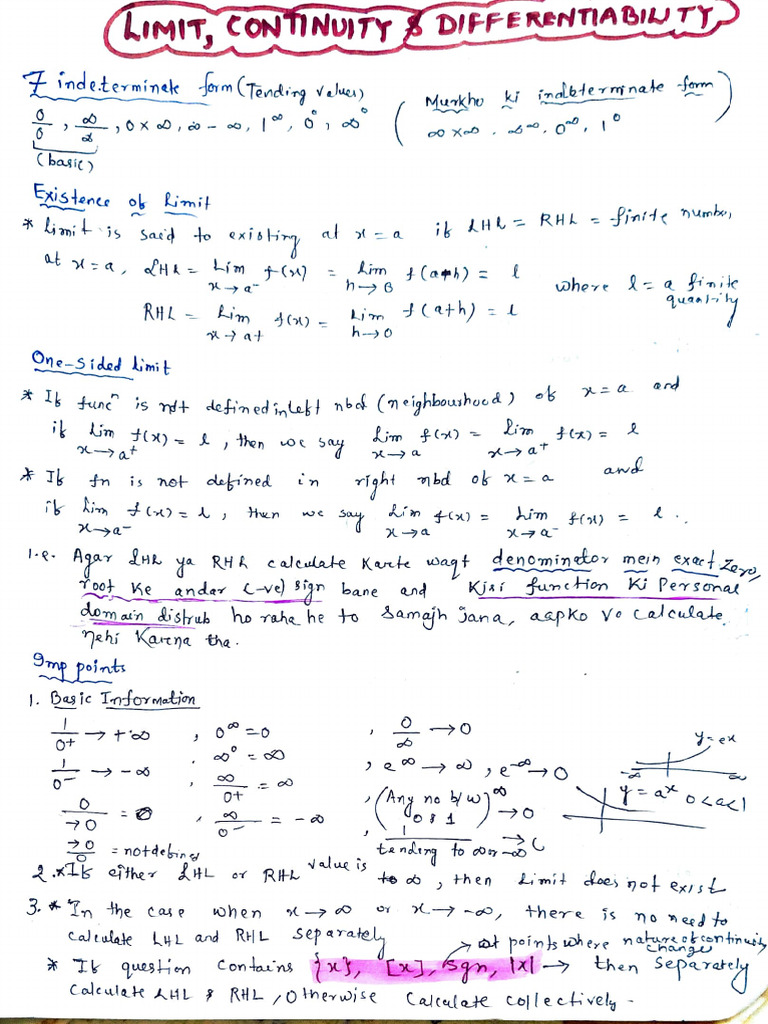 LIMIT, CONTINUITY & DIFFERENTIABILITY
7 indeterminate form (Tending values)
0/0, ∞/∞, 0×∞, ∞-∞, 1^∞, 0^0, ∞^0
(basic)
(Murkho ki indeterminate form
∞×∞, ∞^∞, 0^∞, 1^0)
Existence of Limit
* Limit is said to existing at x=a if LHL = RHL = finite number,
at x=a, LHL = Lim x→a- f(x) = lim h→0 f(a-h) = l where l = a finite quantity
RHL = Lim x→a+ f(x) = Lim h→0 f(a+h) = l
One-Sided Limit
* If funcn is not defined in left nbd (neighbourhood) of x=a and
if Lim x→a+ f(x) = l, then we say Lim x→a f(x) = Lim x→a+ f(x) = l
* If fn is not defined in right nbd of x=a and
if Lim x→a- f(x) = l, then we say Lim x→a f(x) = Lim x→a- f(x) = l..
i.e. Agar LHL ya RHL calculate Karte waqt denominator mein exact zero,
root Ke andar (-ve) sign bane and Kisi function Ki Personal
domain distrub ho raha he to Samajh jana, aapko vo calculate
nehi Karna tha.
Imp points
1. Basic Information
1/0+ → +∞, 0^∞ = 0, 0/∞ → 0
1/0- → -∞, ∞^0 = ∞, e^∞ → ∞, e^-∞ → 0
y=ex
-∞ ∞
0/→0 = 0, ∞/0+ = ∞, (Any no b/w 0 & 1)^∞ → 0
y=a^x 0<a<1
→0/0 = not defined, ∞/0- = -∞, 1/tending to ∞ or -∞ →
2. * If either LHL or RHL value is to ∞, then Limit does not exist
3. * In the case when x→∞ or x→-∞, there is no need to
calculate LHL and RHL separately
→ at points where nature of continuity changes
* If question contains {x}, [x], sgn, |x| → then separately
calculate LHL & RHL, Otherwise calculate collectively-